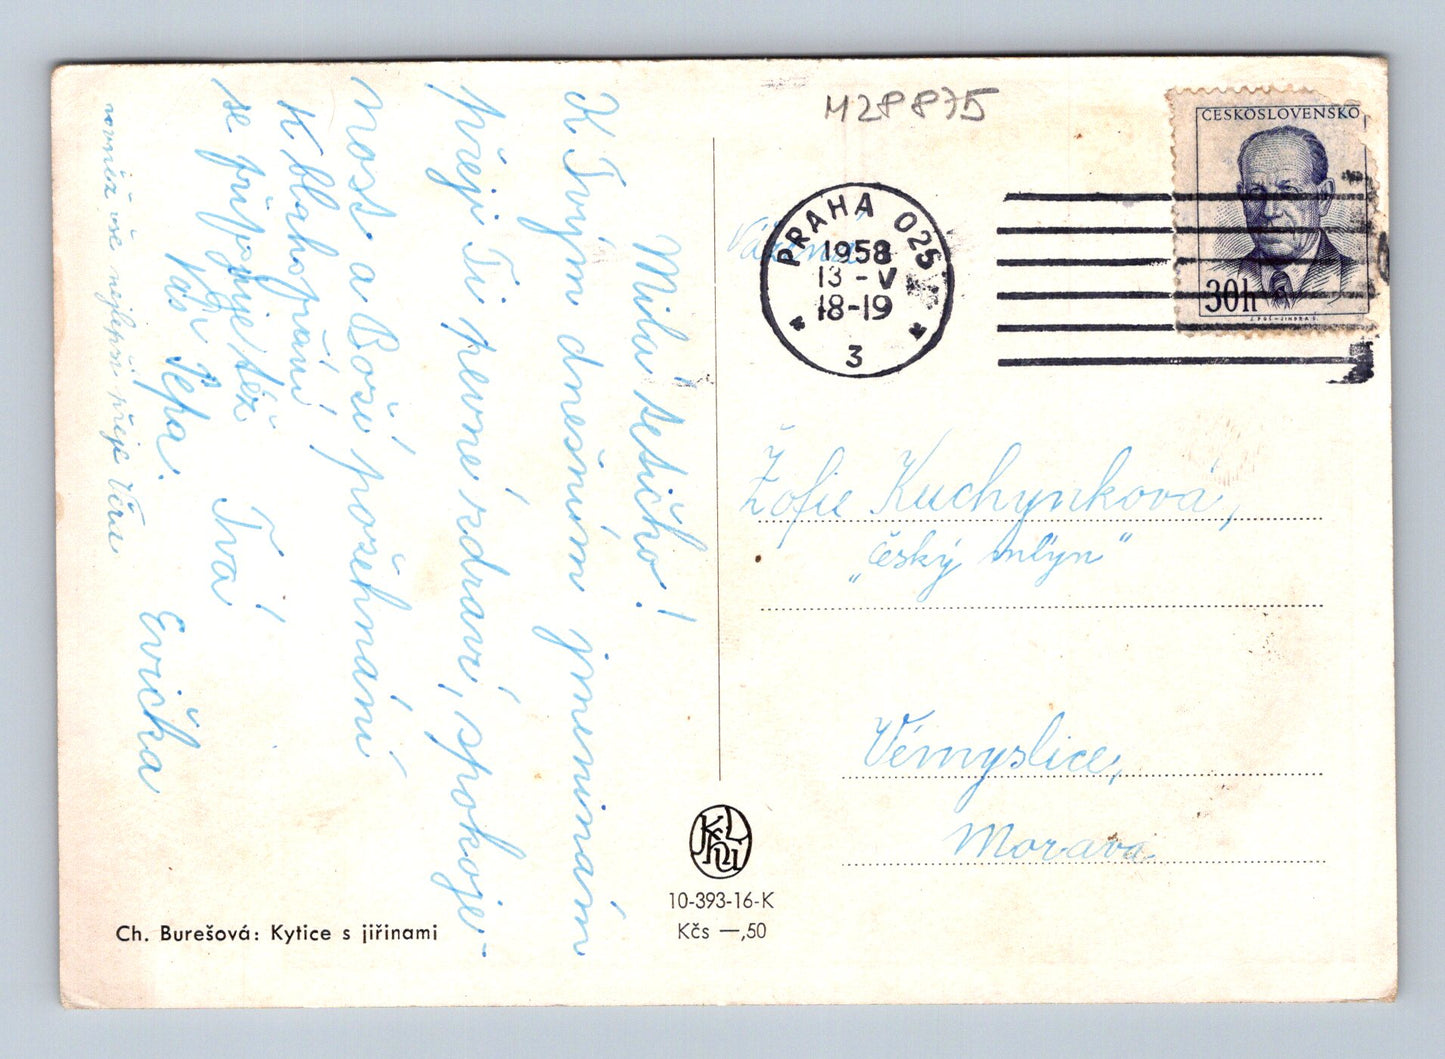 M28875
ČESKOSLOVENSKO
30h
PRAHA 025
1958
13-V
18-19
3
Vážená
Milá tetičko!
K Tvým dnešním jmeninám
přeji Ti pevné zdraví, spokoje-
nost a Boží požehnání
K blahopřání
se připojuje též
Váš Pepa.
Tvá
Evička
rovněž vše nejlepší přeje
Žofie Kuchynková,
„Český mlýn"
Vémyslice,
Morava
10-393-16-K
Kčs —,50
Ch. Burešová: Kytice s jiřinami